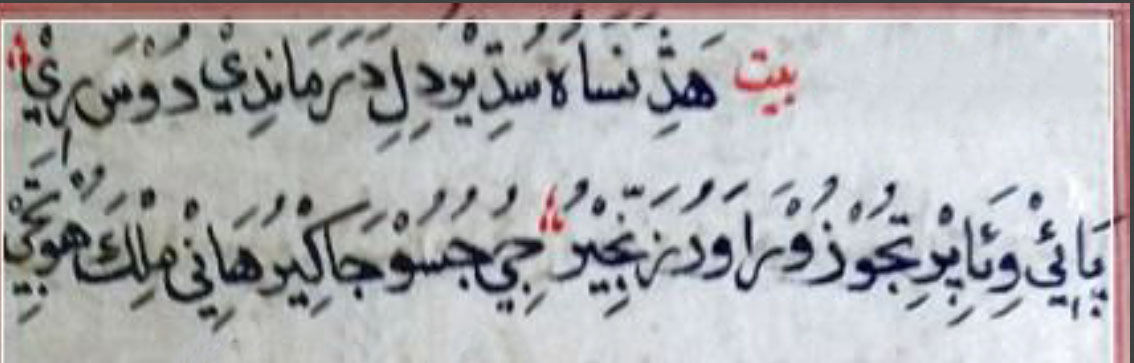 بيت هَڎِ نَسَاہ سُڌِيُو دِلِ دَرَمَانْدِيْ دُوْسَرِيْ
پَائِيْ وِئَا پِرِتَجُوْ زُوْرَاوَرُ زَنْجِيْرُ جِيْ جُسُوْ جَاكِيْرُ هَانِيْ مِلْكَ هُوْتَجِيْ